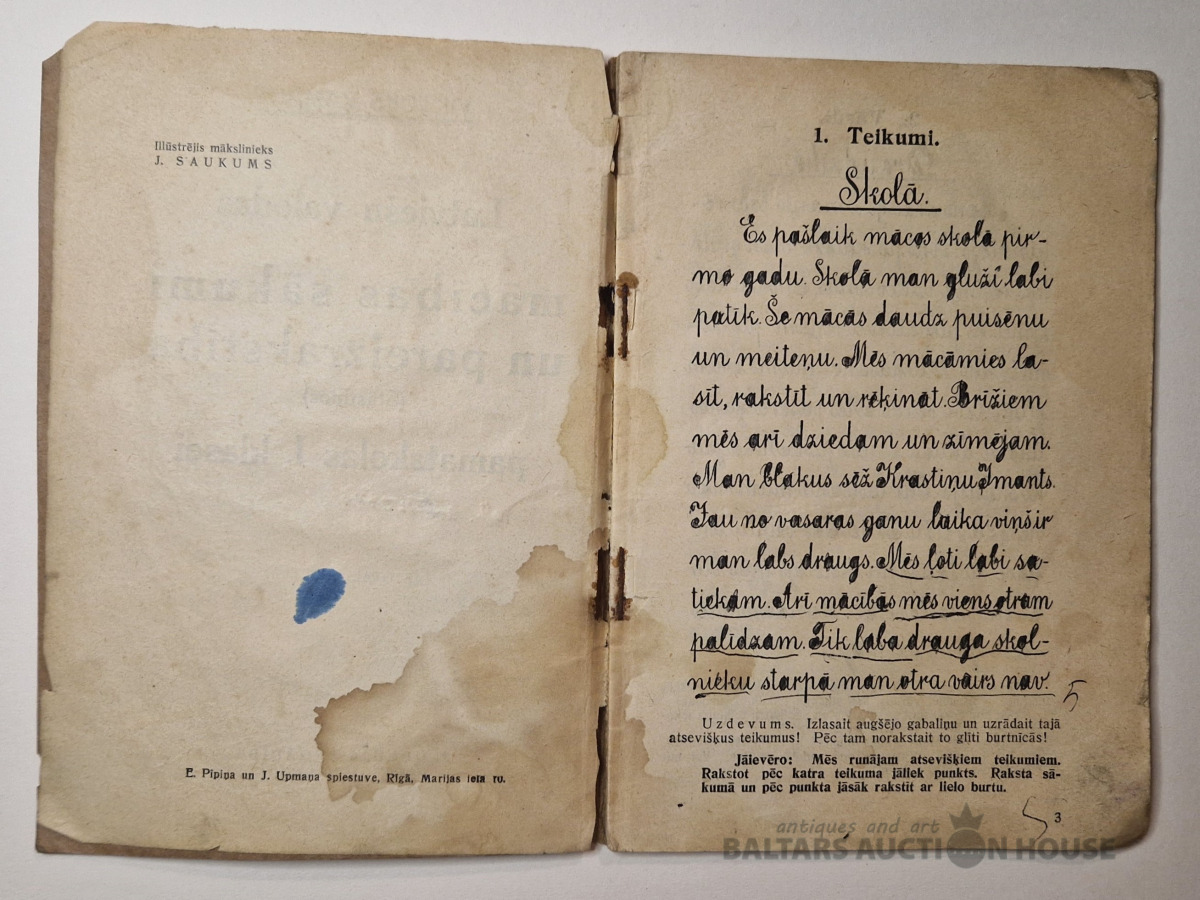 Illūstrējis mākslinieks
J. SAUKUMS
E. Pīpiņa un J. Upmaņa spiestuve, Rīgā, Marijas ielā
1. Teikumi.
Skolā.
Es pašlaik mācos skolā pir-
mo gadu. Skolā man gluži labi
patīk. Še mācās daudz puisēnu
un meiteņu. Mēs mācāmies la-
sīt, rakstīt un rēķināt. Brīžiem
mēs arī dziedam un zīmējam.
Man blakus sēž Krastiņu Imants.
Jau no vasaras ganu laika viņš ir
man labs draugs. Mēs ļoti labi sa-
tiekam. Arī mācībās mēs viens otram
palīdzam. Tik laba drauga skol-
nieku starpā man otra vairs nav.
5
Uzdevums. Izlasait augšējo gabaliņu un uzrādait tajā
atsevišķus teikumus! Pēc tam norakstait to glīti burtnīcās!
Jāievēro: Mēs runājam atsevišķiem teikumiem.
Rakstot pēc katra teikuma jāliek punkts. Raksta sā-
kumā un pēc punkta jāsāk rakstīt ar lielo burtu.
5
3
antiques and art
BALTARS AUCTION HOUSE